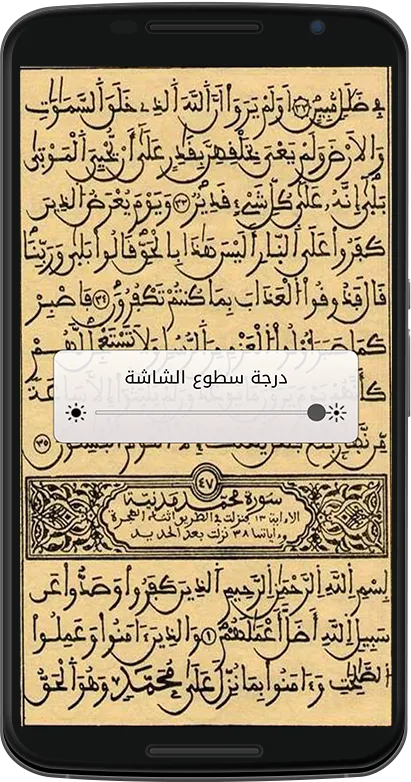 فِي ضَلَلٍ مُّبِينٍ ٣٢ اَوَلَمْ يَرَوَاْ اَنَّ اَللَّهَ اَلذِے خَلَقَ اَلسَّمَوَتِ
وَالاَرْضَ وَلَمْ يَعْيَ بِخَلْقِهِنَّ بِقَدِرٍ عَلَىٰ أَنْ يُّحْيِيَ اَلْمَوْتَىٰ
بَلَىٰ إِنَّهُۥ عَلَىٰ كُلِّ شَيْءٍ قَدِيرٌ ٣٣ وَيَوْمَ يُعْرَضُ اَلذِينَ
كَفَرُواْ عَلَى اَلنَّارِ أَلَيْسَ هَذَا بِالْحَقِّ قَالُواْ بَلَىٰ وَرَبِّنَا
قَالَ فَذُوقُواْ اَلْعَذَابَ بِمَا كُنتُمْ تَكْفُرُونَ ٣٤ فَاصْبِرْ
كَمَا صَبَرَ تَسْتَعْجِل لَّهُمْ
درجة سطوع الشاشة
٣٥
٤٧
سورة محمد مدنية
الا ءاية ١٣ فنزلت في الطريق اثناء الهجرة
وءاياتها ٣٨ نزلت بعد الحديد
بِسْمِ اِللَّهِ اِلرَّحْمَٰنِ اِلرَّحِيمِ اِلذِينَ كَفَرُواْ وَصَدُّواْ عَن
سَبِيلِ اِللَّهِ أَضَلَّ أَعْمَلَهُمْ ١ وَالذِينَ ءَامَنُواْ وَعَمِلُواْ
اُلصَّلِحَتِ وَءَامَنُواْ بِمَا نُزِّلَ عَلَىٰ مُحَمَّدٍ وَهُوَ اَلْحَقُّ